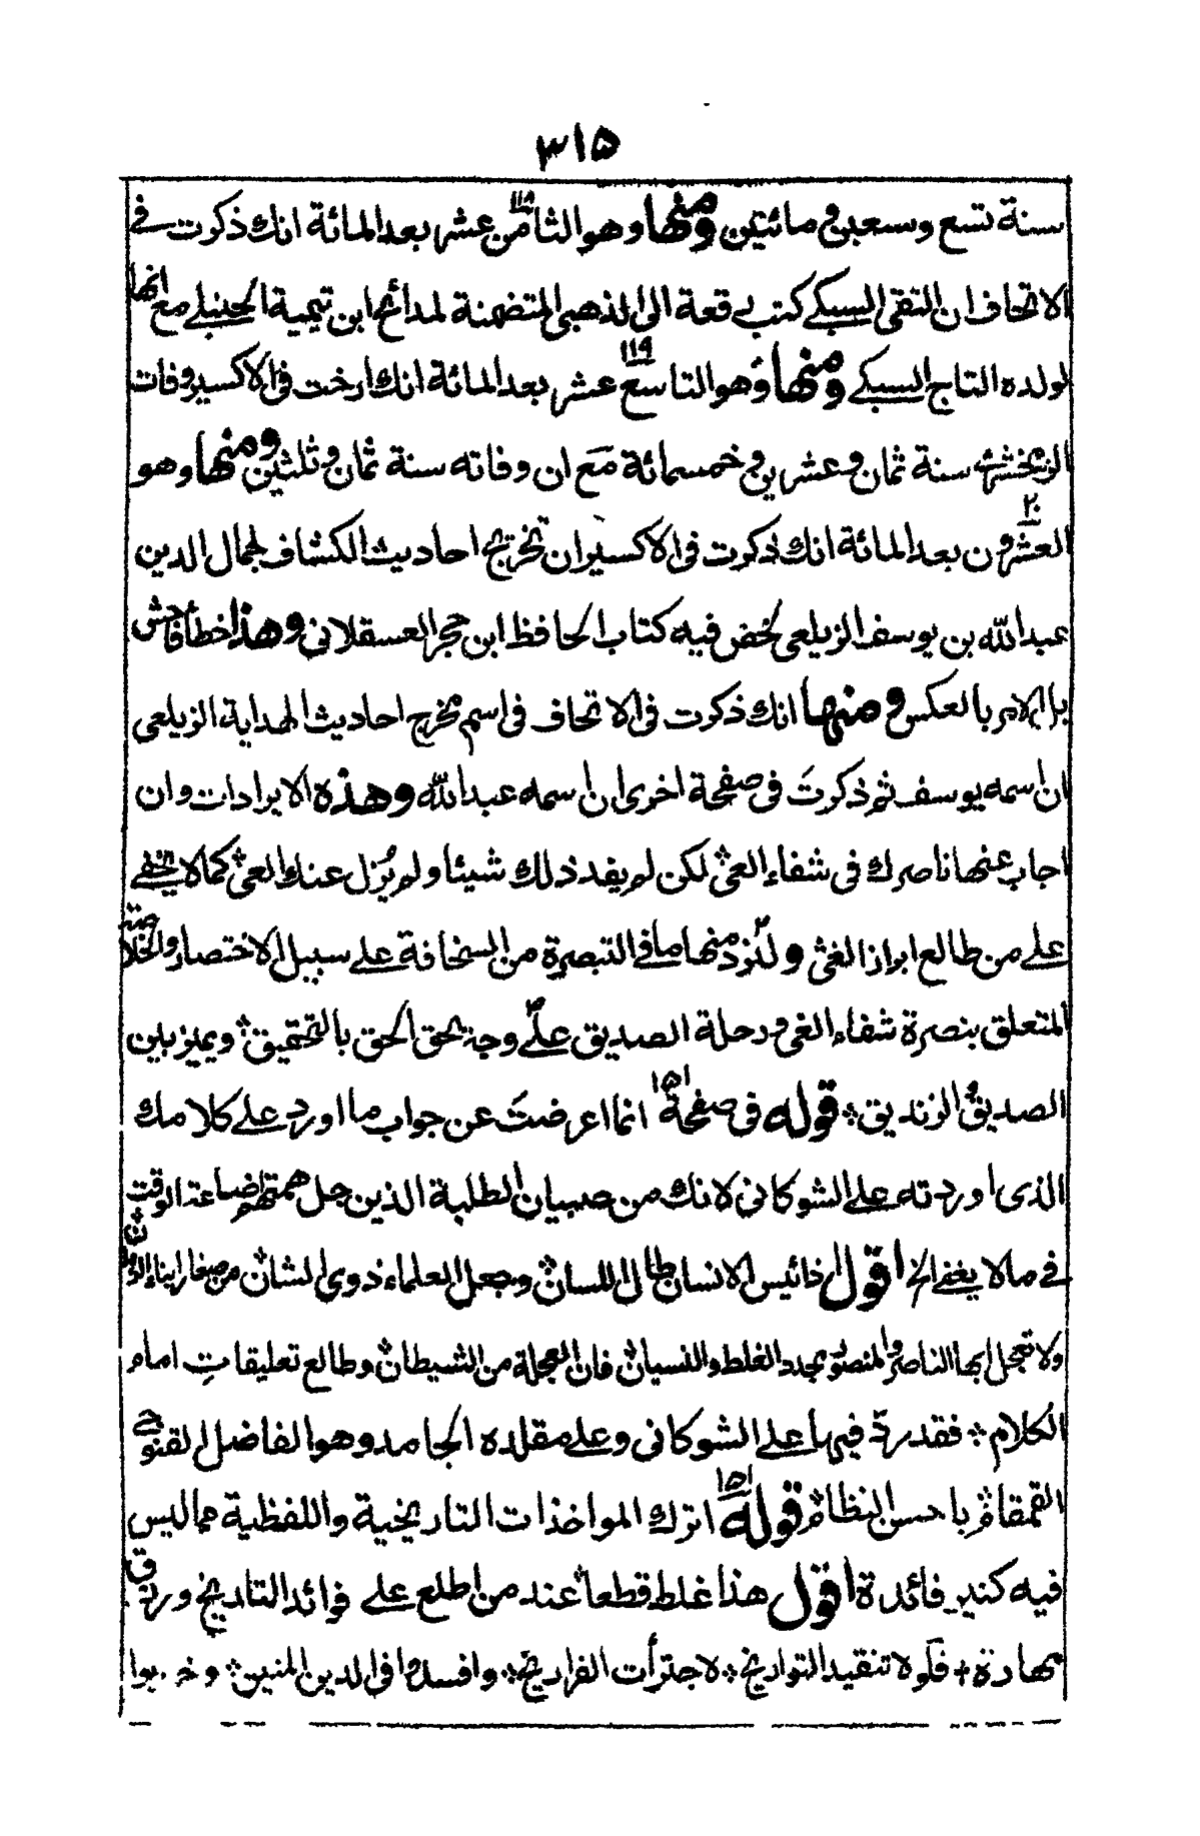 ٣١٥
سنة تسع وسعين ومائتين ومنها وهو الثامن ١١٨ عشر بعد المائة انك ذكرت فے
الاتحاف ان التقى السبكے كتب رقعة الى الذهبى المتضمنة لمدائح ابن تيمية الحنبلے مع انها
لولده التاج السبكے ومنها وهو التاسع ١١٩ عشر بعد المائة انك ارخت فى الاكسير وفات
الزمخشرى سنة ثمان وعشرين وخمسمائة مع ان وفاته سنة ثمان وثلثين ومنها وهو
العشرون ٢٠ بعد المائة انك ذكرت فى الاكسير ان تخريج احاديث الكشاف لجمال الدين
عبد الله بن يوسف الزيلعى لخض فيه كتاب الحافظ ابن حجر العسقلانى وهذا خطأ فاحش
بل الامر بالعكس ومنها انك ذكرت فى الاتحاف فى اسم مخرج احاديث الهداية الزيلعى
ان اسمه يوسف ثم ذكرتَ فى صفحة اخرى ان اسمه عبد الله وهذه الايرادات وان
اجاب عنها ناصرك فى شفاء العىّ لكن لم يفد ذلك شيئا ولم يُزل عنك العىّ كما لا يخفے
علے من طالع ابراز الغى ولنُزد منها ما فے التبصرة من السخافة علے سبيل الاختصار والخلاصة
المتعلق بنصرة شفاء الغى ورحلة الصديق علے وجه يحق الحق بالتحقيق ؞ ويميز بين
الصديق والزنديق ؞ قوله فى صفحة ١٥١ انما اعرضتَ عن جواب ما اورد علے كلامك
الذى اوردته علے الشوكانى لانك من صبيان الطلبة الذين جل همتهم اضاعة الوقت
فے ما لا يغنے الخ اقول ارذائيس الانسان طال اللسان ؞ وجعل العلماء ذوى الشان ؞ من صغار ابناء الزمان
ولا تعجل ايها الناصر والمنصور بجدد الغلط والنسيان ؞ فان العجلة من الشيطان ؞ وطالع تعليقاتِ امام
الكلام ؞ فقد ردّ فيها علے الشوكانى وعلے مقلده الجامد وهو الفاضل القنوجے
القمقام ؞ باحسن النظام ؞ قوله ١٥١ اترك المواخذات التاريخية واللفظية مما ليس
فيه كثير فائدة اقول هذا غلط قطعا ؞ عند من اطلع علے فوائد التاريخ ورزق
بهارة + فلولا تنقيد التواريخ ؞ لاجترأت الفراريخ ؞ وافسدوا فى الدين المتين ؞ وخربوا